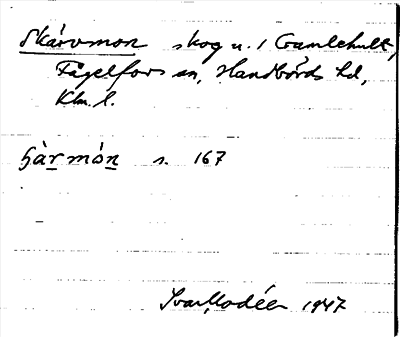 Skärvmon skog u. 1 Gamlehult,
Fågelfors sn, Handbörds hd,
Klm. l.
s. 167
Ivar Modéer 1947